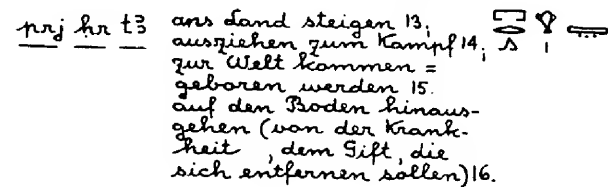 prj ḥr tꜣ ans Land steigen 13;
ausziehen zum Kampf 14;
zur Welt kommen =
geboren werden 15.
auf den Boden hinaus-
gehen (von der Krank-
heit , dem Gift, die
sich entfernen sollen) 16.